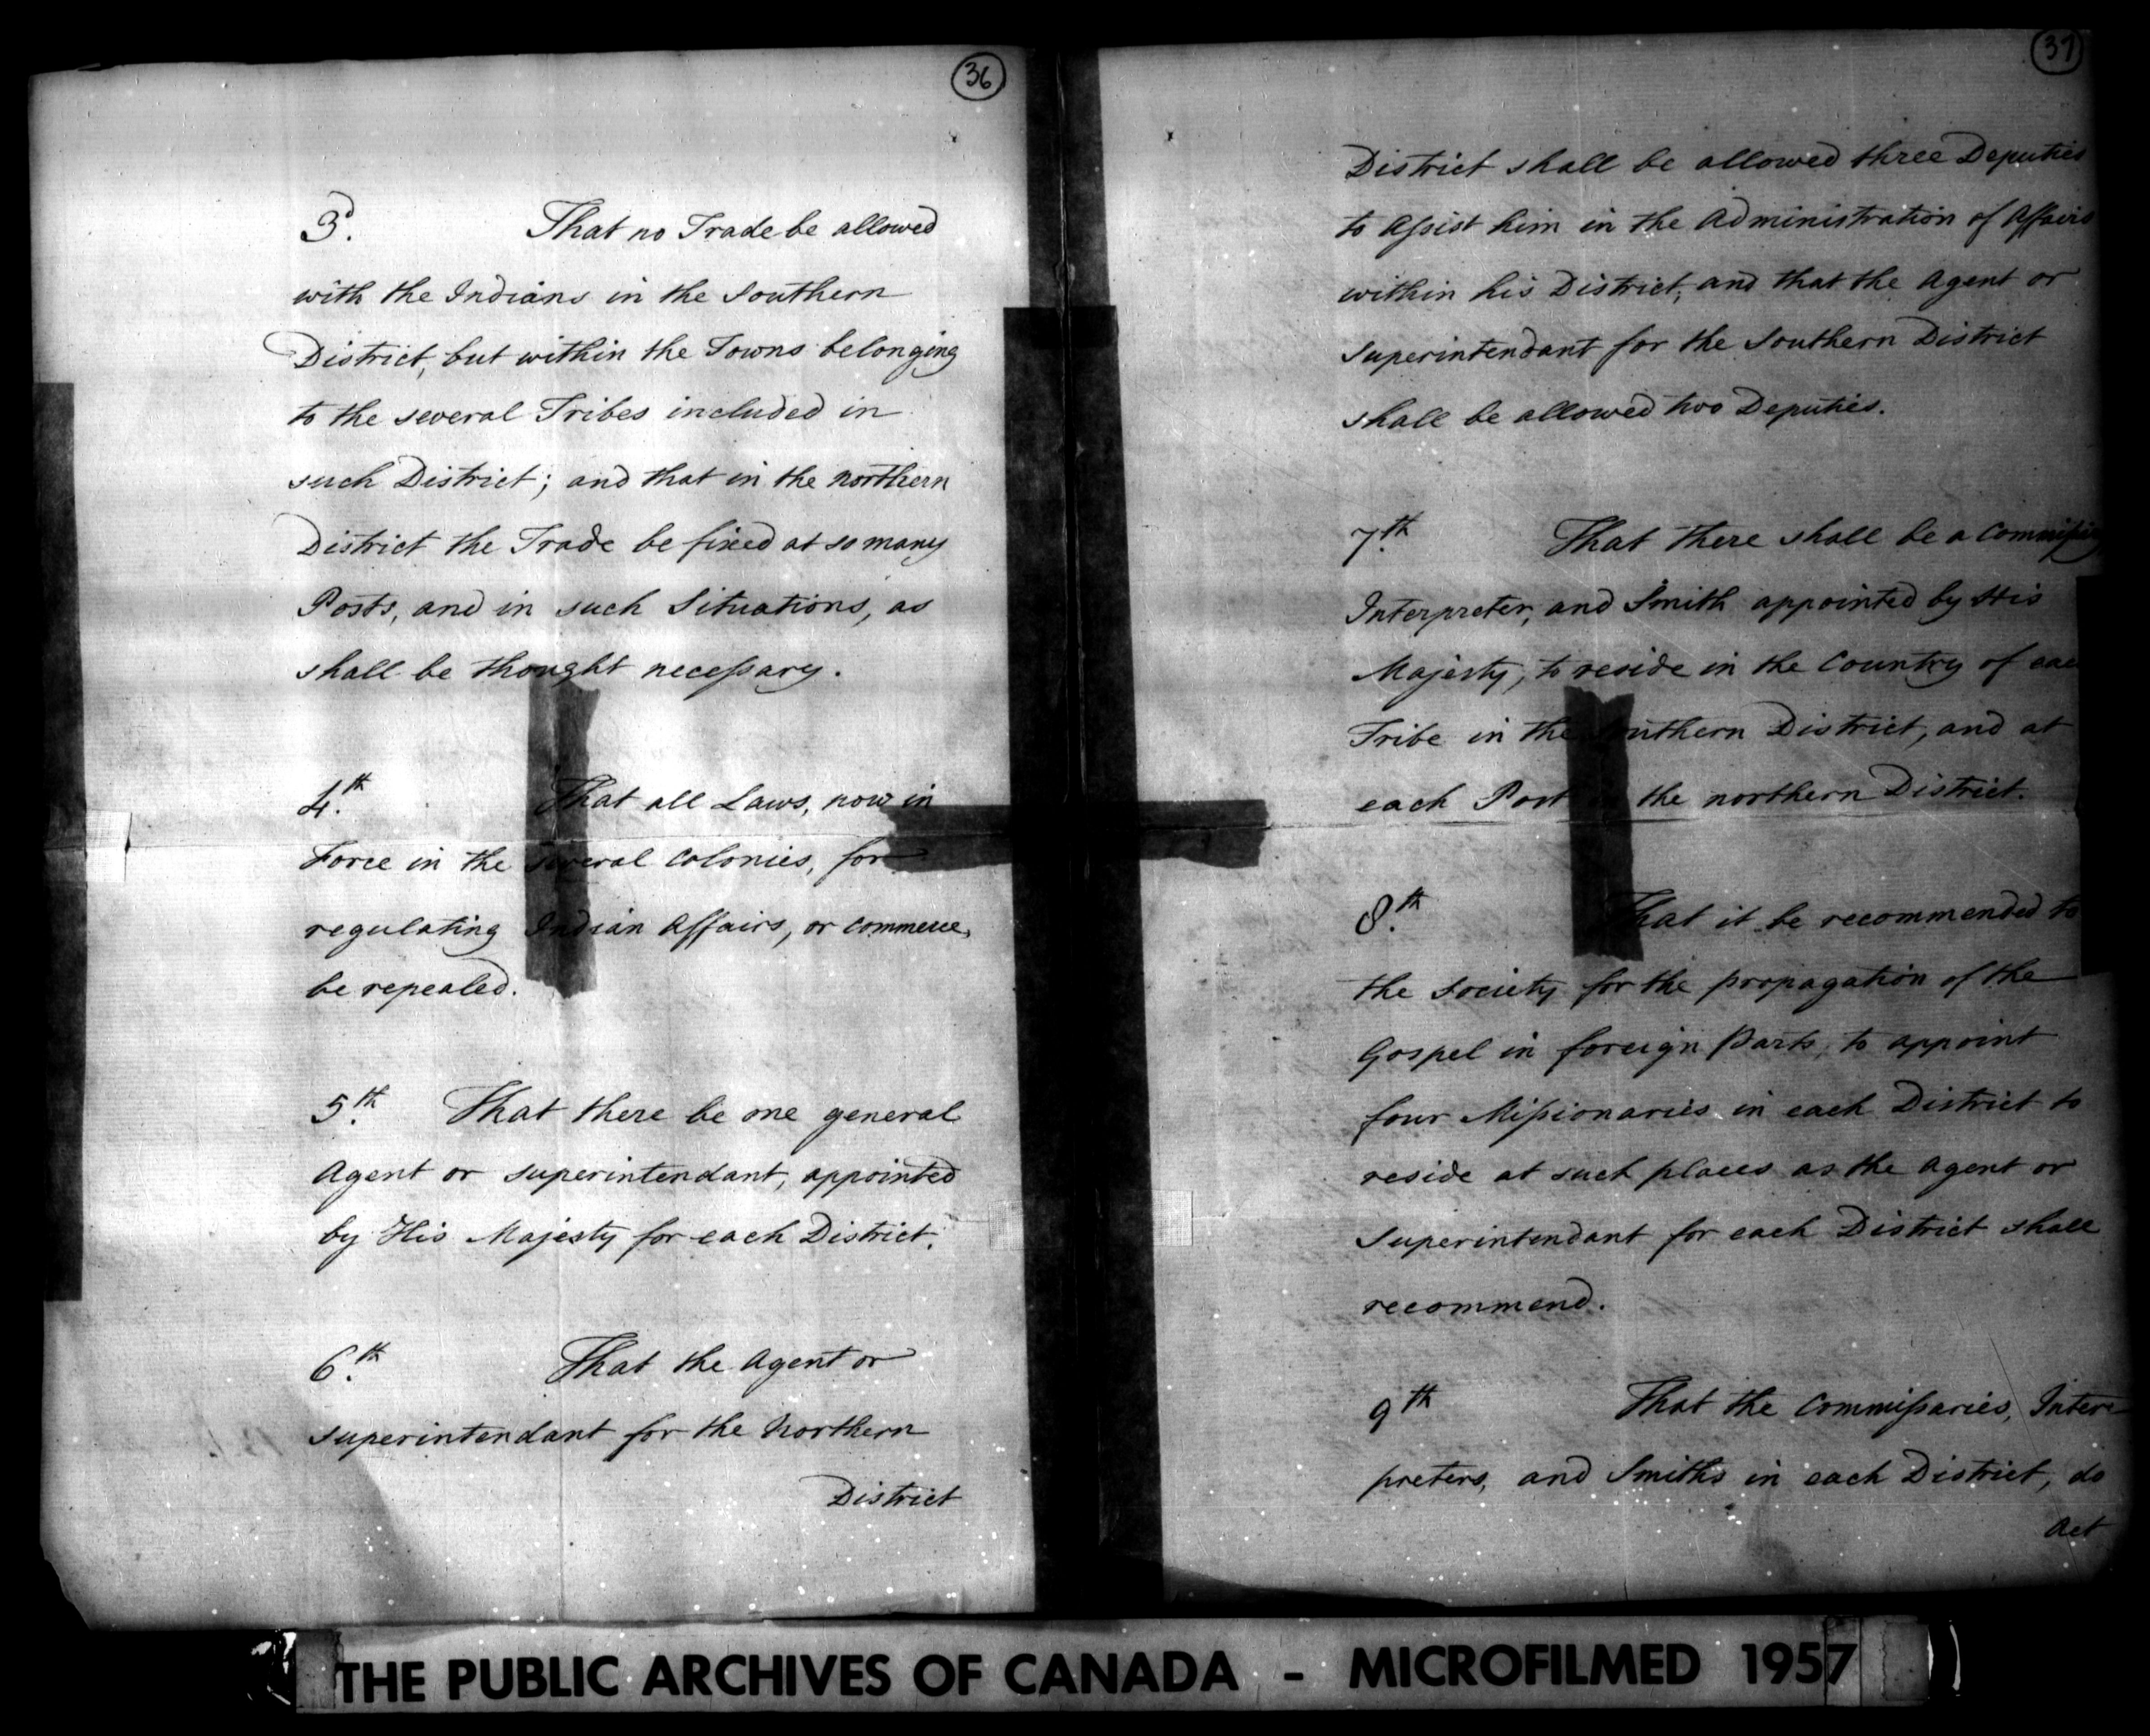 36
3.d That no Trade be allowed
with the Indians in the Southern
District, but within the Towns belonging
to the several Tribes included in
such District; and that in the northern
District the Trade be fixed at so many
Posts, and in such Situations, as
shall be thought necessary.
4.th That all Laws, now in
Force in the several Colonies, for
regulating Indian Affairs, or Commerce,
be repealed.
5.th That there be one general
Agent or superintendant, appointed
by His Majesty for each District.
6.th That the Agent or
superintendant for the Northern
District
37
District shall be allowed three Deputies
to Assist him in the Administration of Affairs
within his District, and that the Agent or
superintendant for the Southern District
shall be allowed two Deputies.
7.th That there shall be a
Interpreter, and Smith appointed by His
Majesty, to reside in the Country of
Tribe in the Southern District, and at
each Post in the northern District.
8.th That it be recommended to
the Society for the propagation of the
Gospel in foreign Parts, to appoint
four Missionaries in each District to
reside at such places as the Agent or
Superintendant for each District shall
recommend.
9th That the Commissaries, Inter-
preters, and Smiths in each District, do
Act
THE PUBLIC ARCHIVES OF CANADA - MICROFILMED 1957